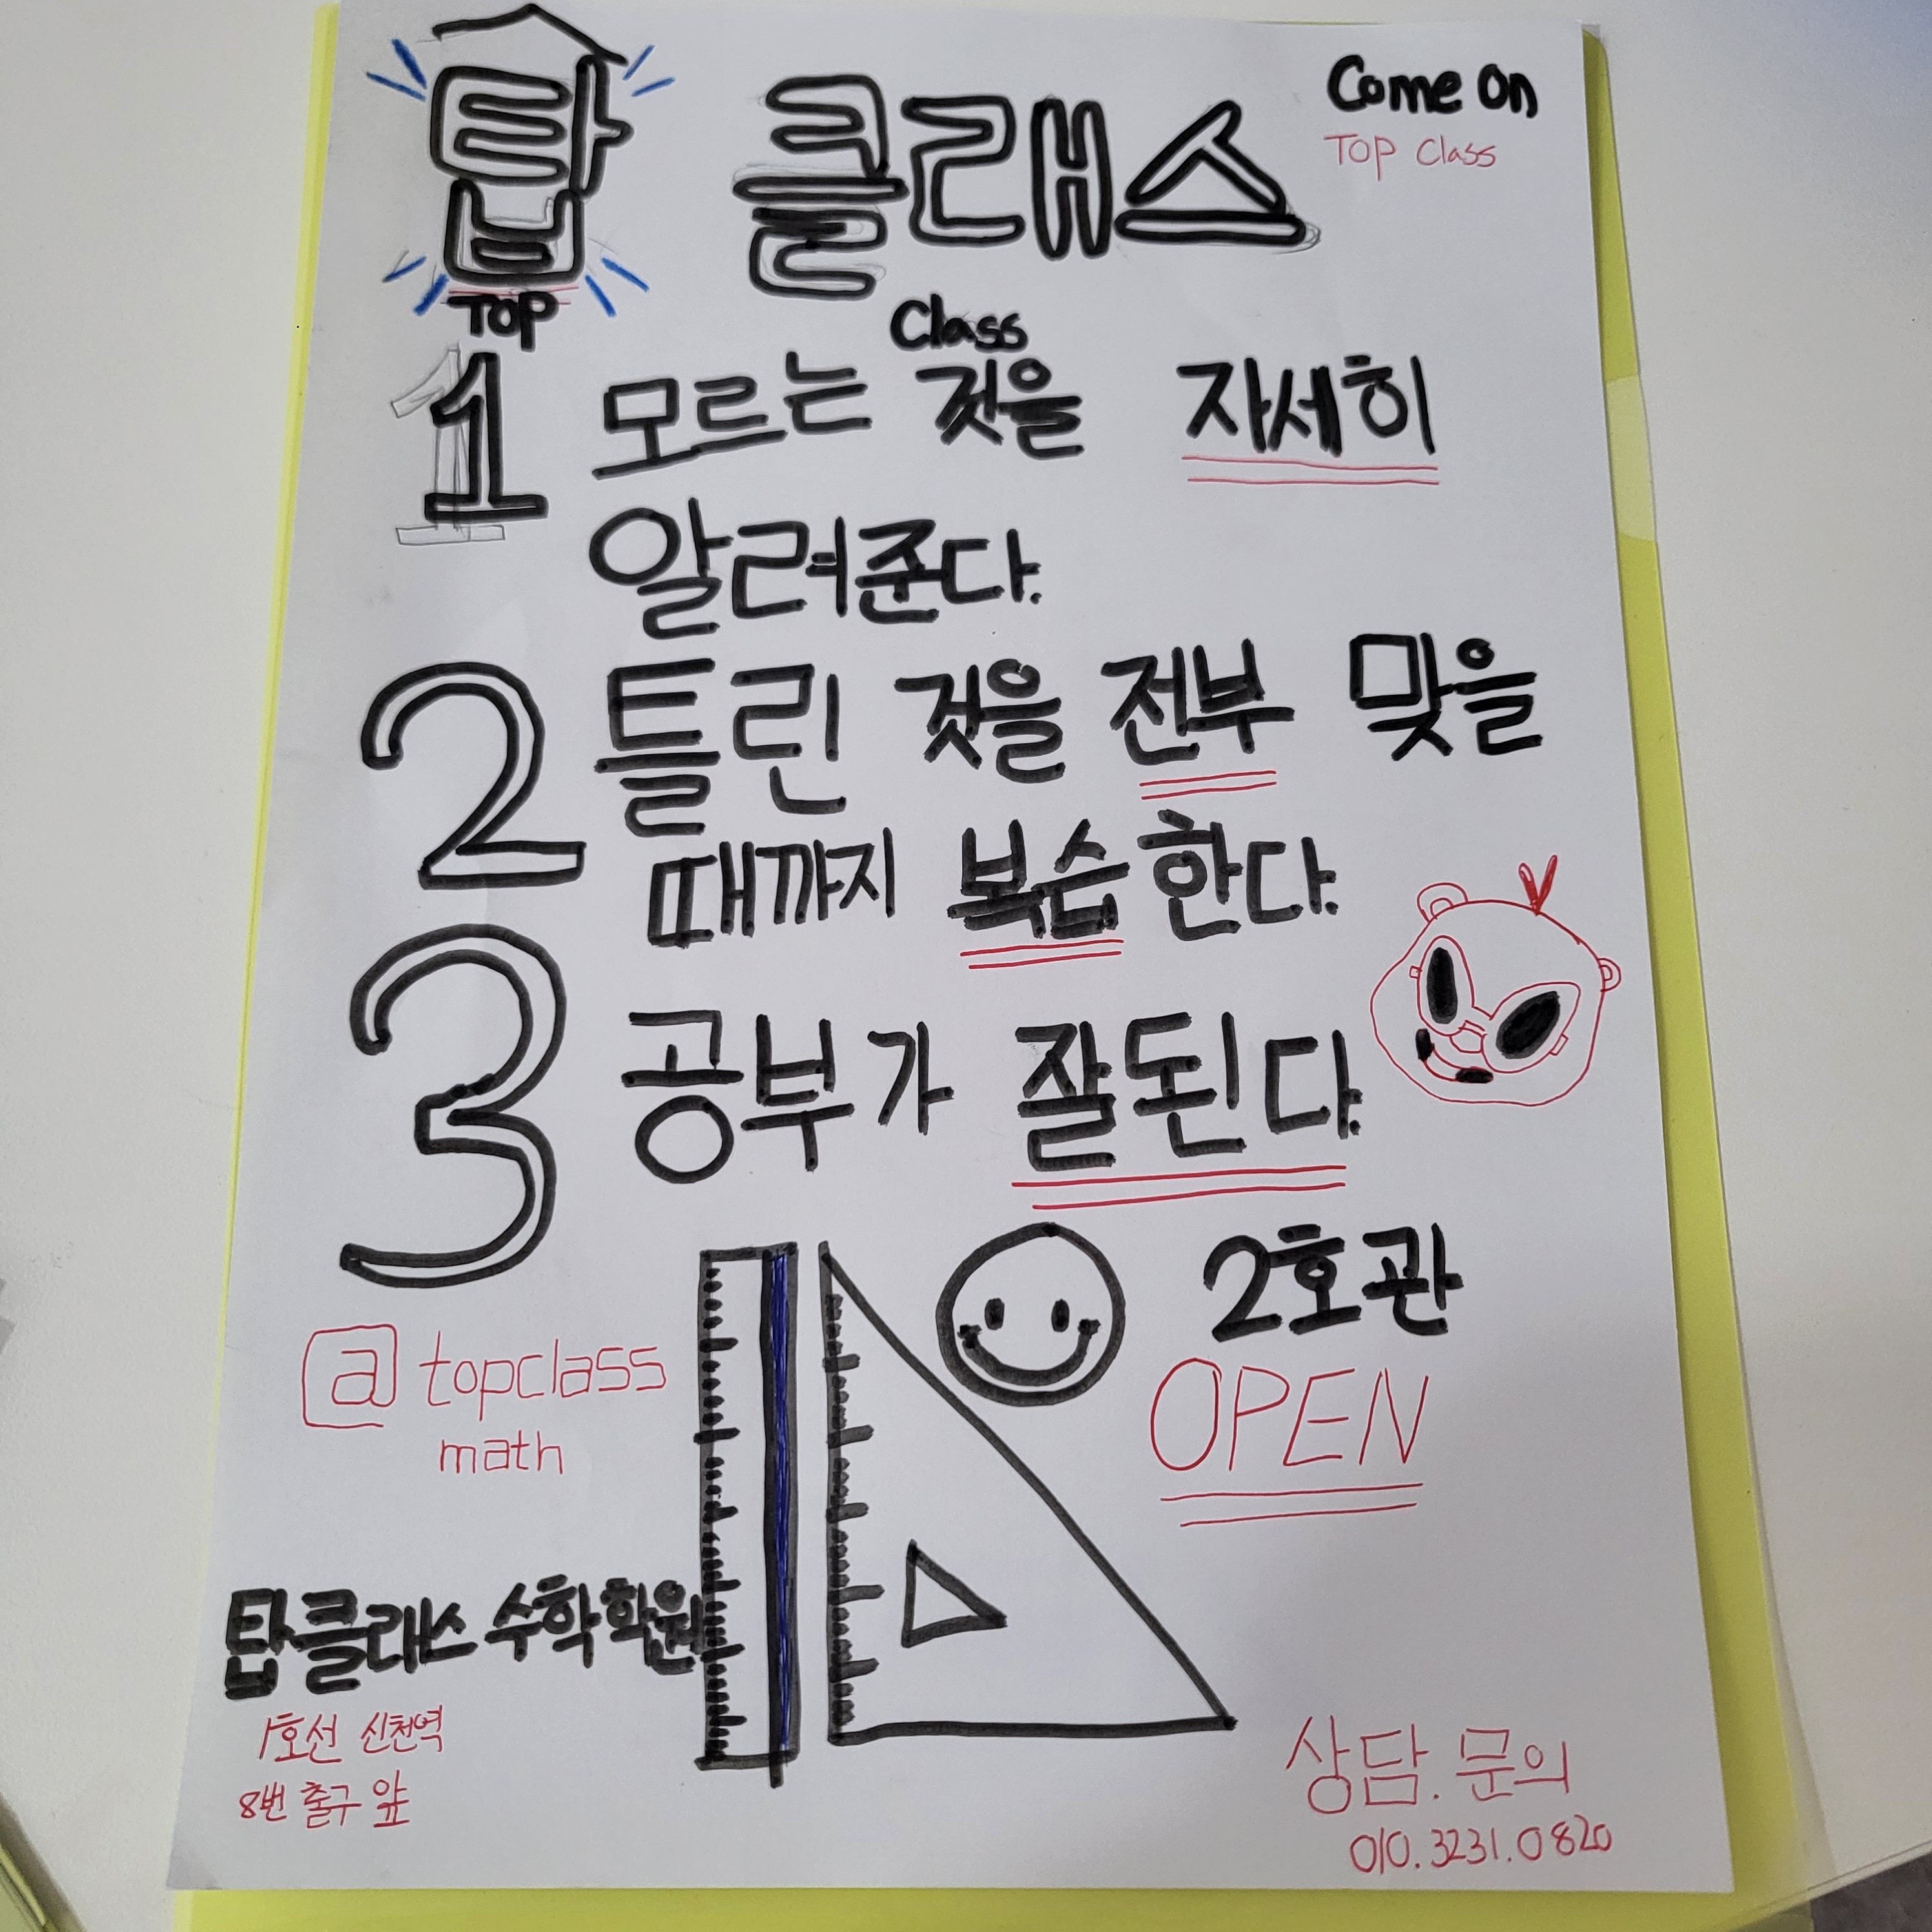 탑 클래스
Come on
TOP Class
TOP
Class
1 모르는 것을 자세히
알려준다.
2 틀린 것을 전부 맞을
때까지 복습한다.
3 공부가 잘된다.
2호관
OPEN
@topclass
math
탑클래스 수학학원
1호선 신천역
8번 출구 앞
상담.문의
010.3231.0820